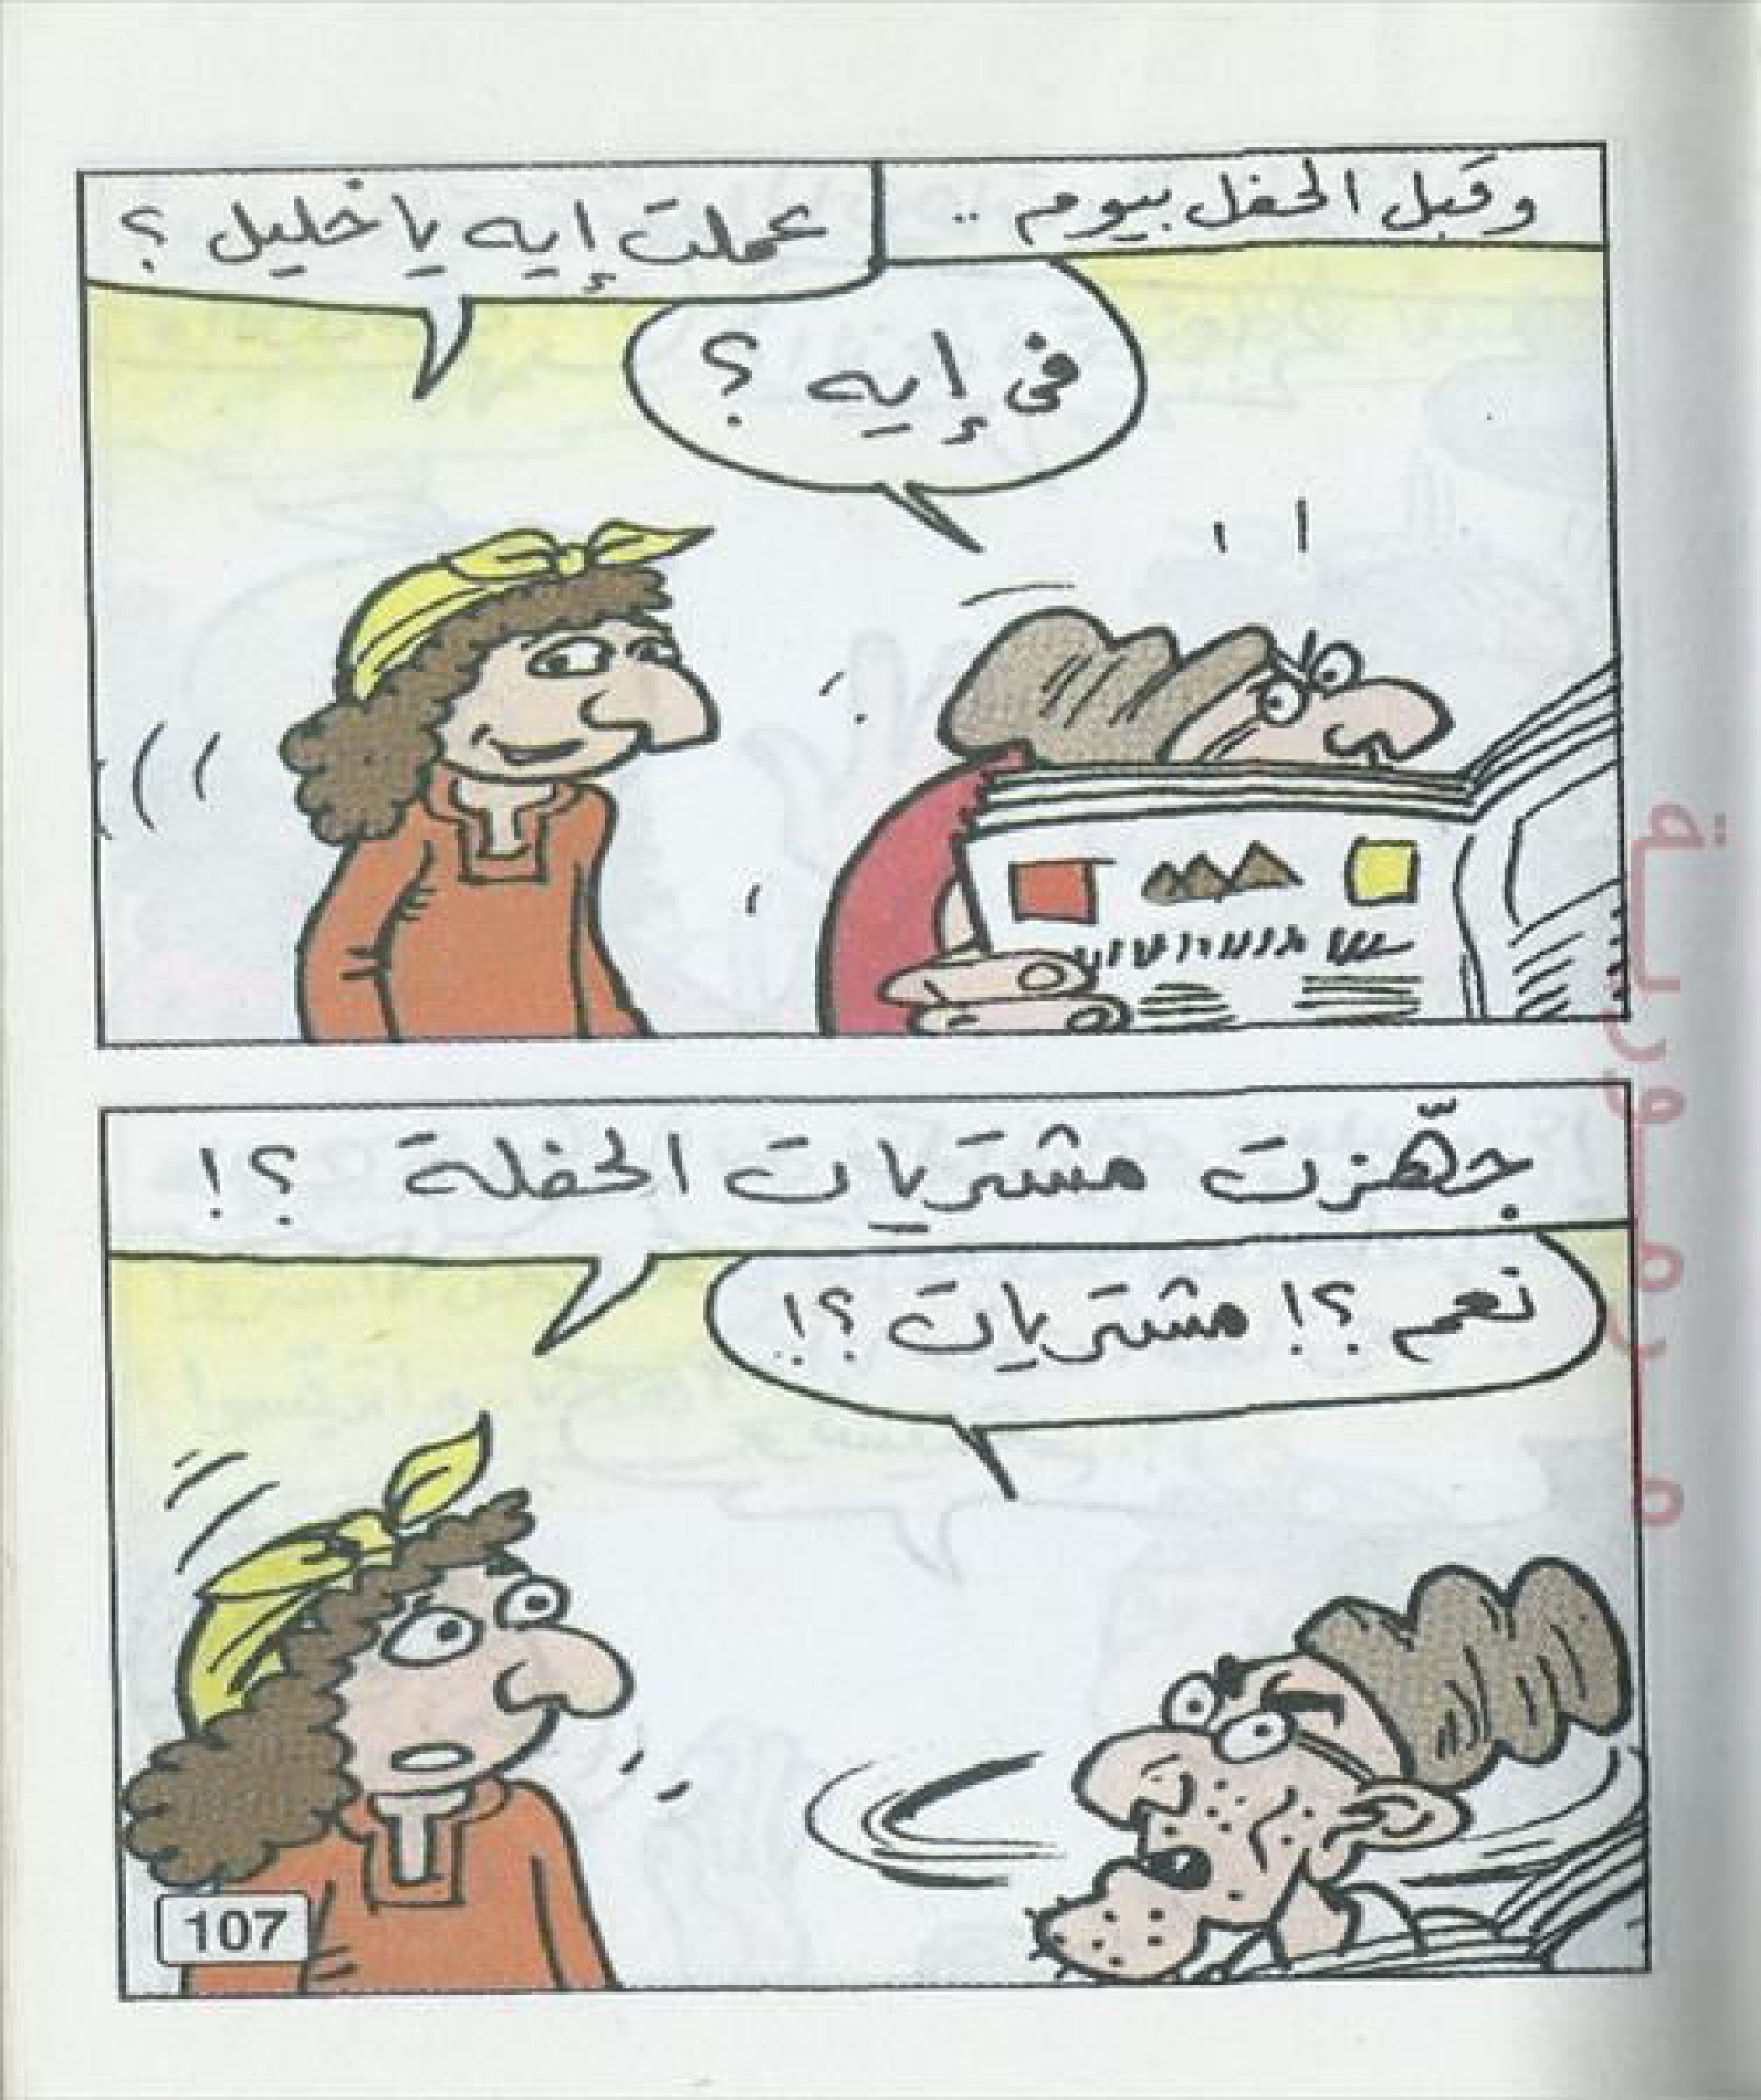 وقبل الحفل بيوم ..
عملت إيه يا خليل ؟
فى إيه ؟
جهّزت مشتريات الحفلة ؟!
نعم ؟! مشتريات ؟!
107